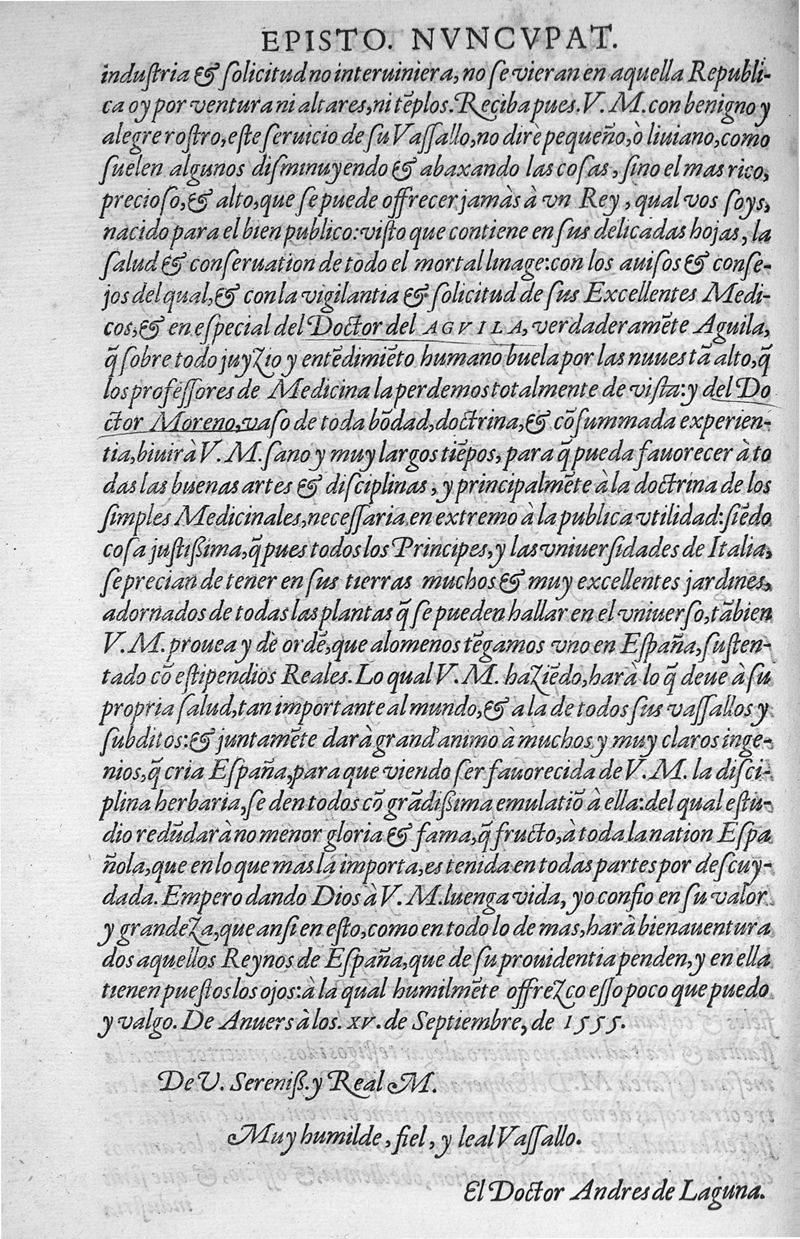 EPISTO. NVNCVPAT.
induſtria & ſolicitud no interuiniera, no ſe vieran en aquella Republi-
ca oy por ventura ni altares, ni tẽplos. Reciba pues. V. M. con benigno y
alegre roſtro, eſte ſeruicio de ſu Vaſſallo, no dirè pequeño, ò liuiano, como
ſuelen algunos diſminuyendo & abaxando las coſas, ſino el mas rico,
precioſo, & alto, que ſe puede offrecer jamàs à vn Rey, qual vos ſoys,
nacido para el bien publico: viſto que contiene en ſus delicadas hojas, la
ſalud & conſeruation de todo el mortal linage: con los auiſos & conſe-
jos del qual, & con la vigilantia & ſolicitud de ſus Excellentes Medi-
cos, & en eſpecial del Doctor del AGVILA, verdaderamẽte Aguila,
q̃ ſobre todo juyzio y entẽdimiẽto humano buela por las nuues tã alto, q̃
los profeſſores de Medicina la perdemos totalmente de viſta: y del Do
ctor Moreno, vaſo de toda bõdad, doctrina, & cõſummada experien-
tia, biuirà V. M. ſano y muy largos tiẽpos, para q̃ pueda fauorecer à to
das las buenas artes & diſciplinas, y principalmẽte à la doctrina de los
ſimples Medicinales, neceſſaria en extremo à la publica vtilidad: ſiẽdo
coſa juſtißima, q̃ pues todos los Principes, y las vniuerſidades de Italia,
ſe precian de tener en ſus tierras muchos & muy excellentes jardines,
adornados de todas las plantas q̃ ſe pueden hallar en el vniuerſo, tãbien
V. M. prouea y dè ordẽ, que alomenos tẽgamos vno en Eſpaña, ſuſten-
tado cõ eſtipendios Reales. Lo qual V. M. haziẽdo, harà lo q̃ deue à ſu
propria ſalud, tan importante al mundo, & a la de todos ſus vaſſallos y
ſubditos: & juntamẽte darà grand'animo à muchos y muy claros inge-
nios, q̃ cria Eſpaña, para que viendo ſer fauorecida de V. M. la diſci-
plina herbaria, ſe den todos cõ grãdißima emulatiõ à ella: del qual eſtu-
dio redũdarà no menor gloria & fama, q̃ fructo, à toda la nation Eſpa
ñola, que en lo que mas la importa, es tenida en todas partes por deſcuy-
dada. Empero dando Dios à V. M. luenga vida, yo confio en ſu valor
y grandeza, que anſi en eſto, como en todo lo de mas, harà bienauentura
dos aquellos Reynos de Eſpaña, que de ſu prouidentia penden, y en ella
tienen pueſtos los ojos: à la qual humilmẽte offrezco eſſo poco que puedo
y valgo. De Anuers à los. XV. de Septiembre, de 1555.
De V. Sereniß. y Real M.
Muy humilde, fiel, y leal Vaſſallo.
El Doctor Andres de Laguna.